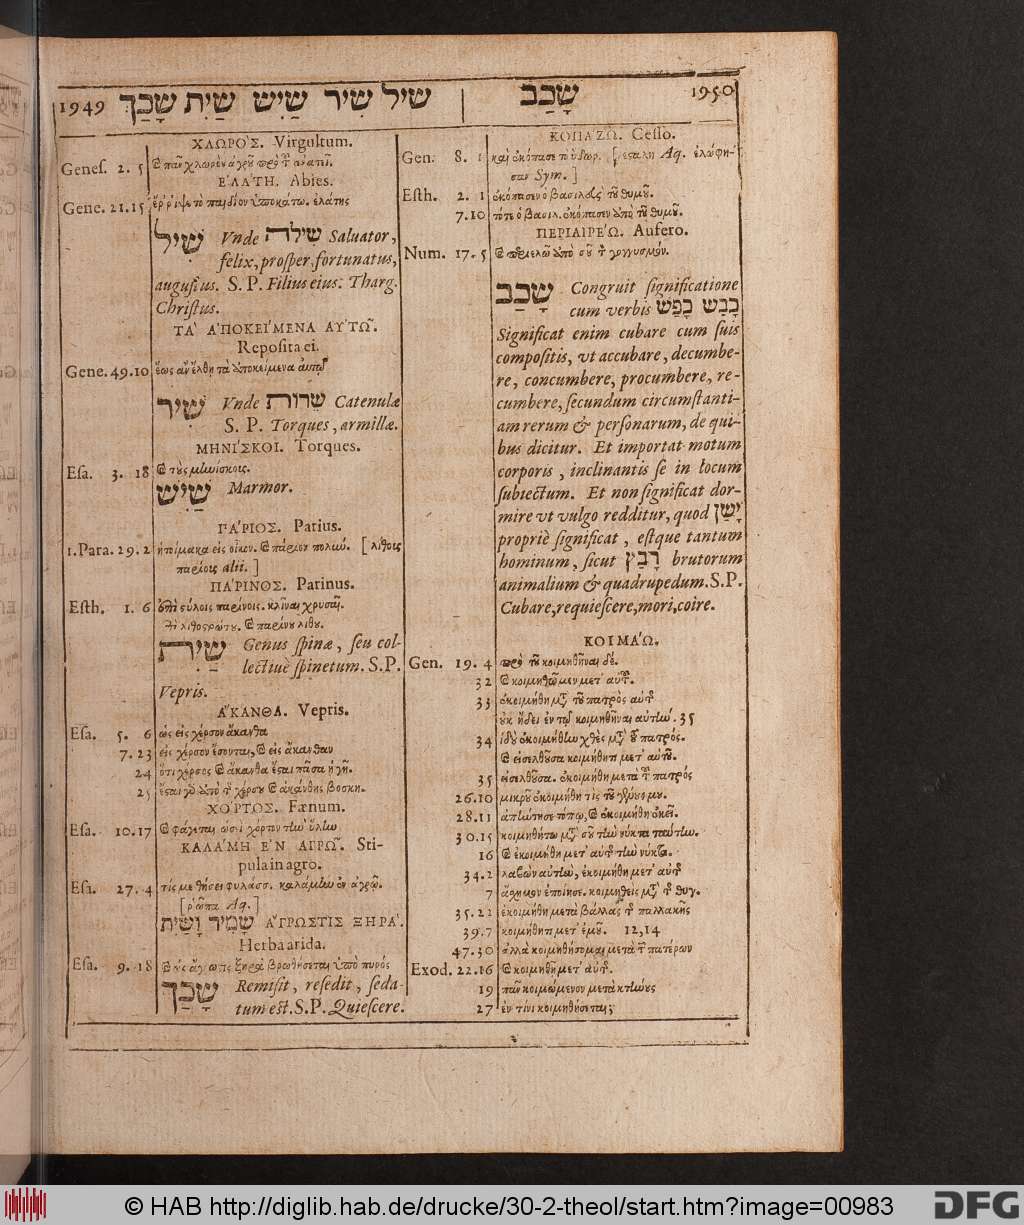 1949 שיל שיר שַׁיִשׁ שַׁיִת שָׁכַךְ
ΧΛΩΡΟ'Σ. Virgultum.
Genes. 2. 5 ϗ πᾶν χλωρὸν ἀγροῦ πρὸ τοῦ
ΕΛΑ'ΤΗ. Abies.
Gene. 21.15 ἔρριψε τὸ παιδίον ὑποκάτω. ἐλάτης
שִׁיל Vnde שִׁילֹה Saluator,
felix, prosper, fortunatus,
augustus. S. P. Filius eius. Tharg.
Christus.
ΤΑ' ΑΠΟΚΕΙ'ΜΕΝΑ ΑΥΤΩ͂.
Reposita ei.
Gene. 49.10 ἕως ἂν ἔλθῃ τὰ ἀποκείμενα αὐτῷ
שִׁיר Vnde שֵׁרוֹת Catenulæ
S. P. Torques, armillæ.
ΜΗΝΙ'ΣΚΟΙ. Torques.
Esa. 3. 18 ϗ τοὺς μηνίσκοις.
שַׁיִשׁ Marmor.
ΠΑ'ΡΙΟΣ. Parius.
1.Para. 29. 2 ἡτοίμακα εἰς οἶκον. ϗ πάριον πολιώ. [ λίθοις
παρίοις alii. ]
ΠΑ'ΡΙΝΟΣ. Parinus.
Esth. 1. 6 ἐπὶ στύλοις παρίνοις. κλῖναι χρυσαῖ.
λιθοστρώτου. ϗ παρίνου λίθου.
שַׁיִת Genus spinæ, seu col-
lectiuè spinetum. S.P.
Vepris.
Α῎ΚΑΝΘΑ. Vepris.
Esa. 5. 6 ὡς εἰς χέρσον ἄκανθα
7. 23 εἰς χέρσον ἔσονται, ϗ εἰς ἄκανθαν
24 ὅτι χέρσος ϗ ἄκανθα ἔσται πᾶσα ἡ γῆ.
25 ἔσται γὸ ἀπὸ τ χέρσου ϗ ἀκάνθης βοσκη.
ΧΟ'ΡΤΟΣ. Fænum.
Esa. 10.17 ϗ φάγεται ὡσεὶ χόρτον τὴν ὕλην
ΚΑΛΑ'ΜΗ Ε'Ν ΑΓΡΩ͂. Sti-
pula in agro.
Esa. 27. 4 τίς με θήσει φυλάσσ. καλάμην ἐν ἀγρῷ.
[ ῥῶπα Aq. ]
שָׁמִיר וָשַׁיִת Α῎ΓΡΩΣΤΙΣ ΞΗΡΑ'.
Herba arida.
Esa. 9. 18 ϗ ὡς ἄγρωστις ξηρὰ βρωθήσεται ὑπὸ πυρός
שָׁכַךְ Remisit, resedit, seda-
tum est. S.P. Quiescere.
שָׁכַב 1950
ΚΟΠΑ'ΖΩ. Cesso.
Gen. 8. 1 καὶ ἐκόπασε τὸ ὕδωρ. [ ἐστάλη Aq. ἐλώφη-
σαν Sym. ]
Esth. 2. 1 ἐκόπασεν ὁ βασιλεὺς τοῦ θυμοῦ.
7.10 τότε ὁ βασιλ. ἐκόπασεν ἀπὸ τοῦ θυμοῦ.
ΠΕΡΙΑΙΡΕ'Ω. Aufero.
Num. 17. 5 ϗ περιελῶ ἀπὸ σοῦ τ γογγυσμόν.
שָׁכַב Congruit significatione
cum verbis כָּבַשׁ כָּפַשׁ
Significat enim cubare cum suis
compositis, vt accubare, decumbe-
re, concumbere, procumbere, re-
cumbere, secundum circumstanti-
am rerum & personarum, de qui-
bus dicitur. Et importat motum
corporis, inclinantis se in locum
subiectum. Et non significat dor-
mire vt vulgo redditur, quod יָשֵׁן
propriè significat, estque tantum
hominum, sicut רָבַץ brutorum
animalium & quadrupedum. S.P.
Cubare, requiescere, mori, coire.
ΚΟΙΜΑ'Ω.
Gen. 19. 4 πρὸ τοῦ κοιμηθῆναι δέ.
32 ϗ κοιμηθῶμεν μετ' αὐτοῦ.
33 ἐκοιμήθη μετὰ τοῦ πατρὸς αὐτ
οὐκ ᾔδει ἐν τῷ κοιμηθῆναι αὐτήν. 35
34 ἰδοὺ ἐκοιμήθην χθὲς μετὰ τοῦ πατρός.
ϗ εἰσελθοῦσα κοιμήθητι μετ' αὐτοῦ.
35 εἰσελθοῦσα. ἐκοιμήθη μετὰ τοῦ πατρός
26.10 μικροῦ ἐκοιμήθη τὶς τοῦ γένους μου.
28.11 ἀπήντησε τόπῳ, ϗ ἐκοιμήθη ἐκεῖ.
30.15 κοιμηθήτω μετὰ σοῦ τὴν νύκτα ταύτην.
16 ϗ ἐκοιμήθη μετ' αὐτ τὴν νύκτα.
34.2 λαβὼν αὐτήν, ἐκοιμήθη μετ' αὐτ
7 ἄσχημον ἐποίησε. κοιμηθεὶς μετὰ τ θυγ.
35.22 ἐκοιμήθη μετὰ βάλλας τ παλλακῆς
39.7 κοιμήθητι μετ' ἐμοῦ. 12,14
47.30 ἀλλὰ κοιμηθήσομαι μετὰ τ πατέρων
Exod. 22.16 ϗ κοιμηθῇ μετ' αὐτ.
19 πᾶν κοιμώμενον μετὰ κτήνους
27 ἐν τίνι κοιμηθήσεται;
© HAB http://diglib.hab.de/drucke/30-2-theol/start.htm?image=00983
DFG